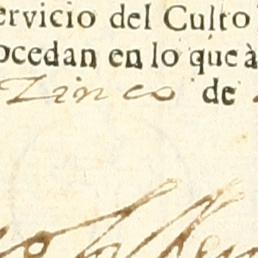 ervicio del Culto
ocedan en lo que à
Zinco de